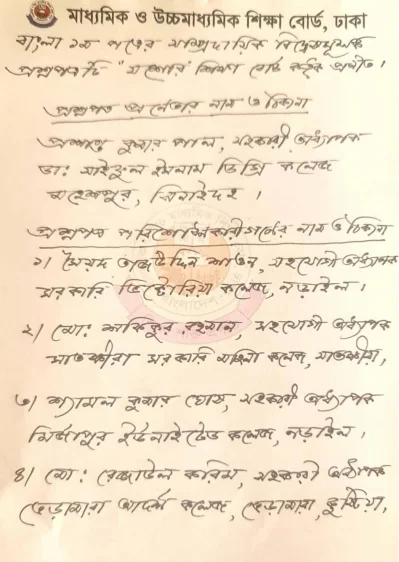 মাধ্যমিক ও উচ্চমাধ্যমিক শিক্ষা বোর্ড, ঢাকা
বাংলা ১ম পত্রের সাম্প্রদায়িক বিদ্বেষমূলক
প্রশ্নপত্রটি "যশোর" শিক্ষা বোর্ড কর্তৃক প্রণীত।
প্রশ্নপত্র প্রণেতার নাম ও ঠিকানা
প্রশান্ত কুমার পাল, সহকারী অধ্যাপক
ডা: সাইফুল ইসলাম ডিগ্রি কলেজ
মহেশপুর, ঝিনাইদহ।
প্রশ্নপত্র পরিশোধনকারীগণের নাম ও ঠিকানা
১। সৈয়দ তাজউদ্দিন শাওন, সহযোগী অধ্যাপক
সরকারি ভিক্টোরিয়া কলেজ, নড়াইল।
২। মো: শফিকুর রহমান, সহযোগী অধ্যাপক
সাতক্ষীরা সরকারি মহিলা কলেজ, সাতক্ষীরা,
৩। শ্যামল কুমার ঘোষ, সহকারী অধ্যাপক
মির্জাপুর ইউনাইটেড কলেজ, নড়াইল।
৪। মো: রেজাউল করিম, সহকারী অধ্যাপক
ভেড়ামারা আদর্শ কলেজ, ভেড়ামারা, কুষ্টিয়া,